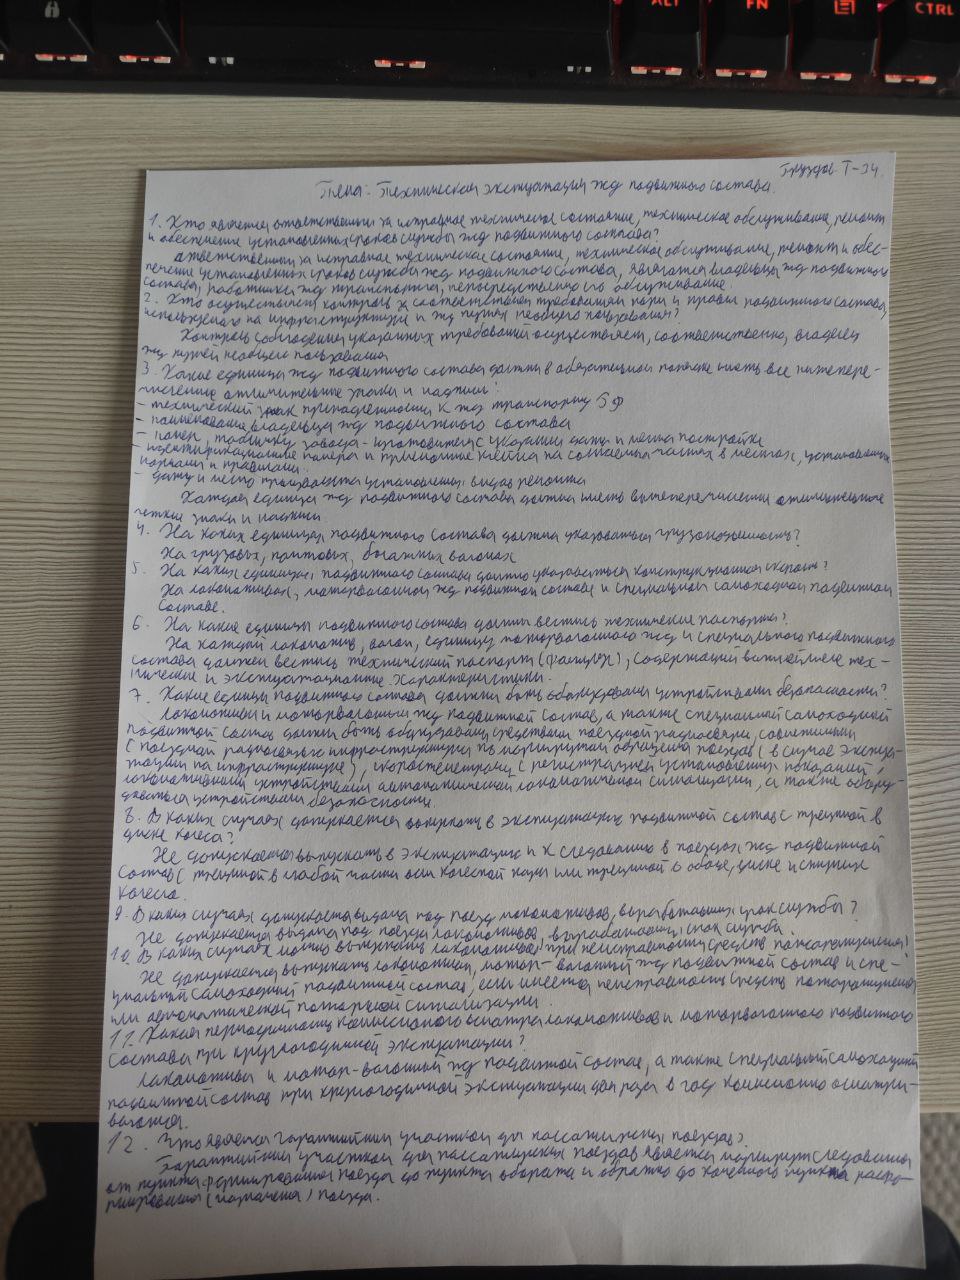 ALT
FN
CTRL
Груздов Т-34.
Тема: Техническая эксплуатация жд подвижного состава.
1. Кто является ответственным за исправное техническое состояние, техническое обслуживание, ремонт
и обеспечение установленных сроков службы жд подвижного состава?
Ответственными за исправное техническое состояние, техническое обслуживание, ремонт и обес-
печение установленных сроков службы жд подвижного состава, являются владельцы жд подвижного
состава, работники жд транспорта, непосредственно его обслуживание.
2. Кто осуществляет контроль за соответствием требованиям норм и правил подвижного состава,
используемого на инфраструктуре и жд путях необщего пользования?
Контроль соблюдения указанных требований осуществляет, соответственно, владелец
жд путей необщего пользования
3. Какие единицы жд подвижного состава должны в обязательном порядке иметь все нижепере-
численные отличительные знаки и надписи:
- технический знак принадлежности к жд транспорту РФ
- наименование владельца жд подвижного состава
- номер, табличку завода-изготовителя с указанием даты и места постройки
- идентификационные номера и приемочные клейма на составных частях в местах, установленных
нормами и правилами.
- дату и место производства установленных видов ремонта
Каждая единица жд подвижного состава должна иметь вышеперечисленные отличительные
четкие знаки и надписи
4. На каких единицах подвижного состава должна указываться грузоподъемность?
На грузовых, почтовых, багажных вагонах
5. На каких единицах подвижного состава должно указываться конструкционная скорость?
На локомотивах, моторвагонном жд подвижном составе и специальном самоходном подвижном
составе.
6. На какие единицы подвижного состава должны вестись технические паспорта?
На каждый локомотив, вагон, единицу моторвагонного жд и специального подвижного
состава должен вестись технический паспорт (формуляр), содержащий важнейшие тех-
нические и эксплуатационные характеристики.
7. Какие единицы подвижного состава должны быть оборудованы устройствами безопасности?
Локомотивы и моторвагонный жд подвижной состав, а также специальный самоходный
подвижной состав должен быть оборудованы средствами поездной радиосвязи, совместимыми
с поездной радиосвязью инфраструктуры по маршрутам обращения поездов (в случае эксплу-
атации на инфраструктуре), скоростемерами с регистрацией установленных показаний,
локомотивными устройствами автоматической локомотивной сигнализации, а также обору-
доваться устройствами безопасности.
8. В каких случаях допускается выпускать в эксплуатацию подвижной состав с трещиной в
диске колеса?
Не допускается выпускать в эксплуатацию и к следованию в поездах жд подвижной
состав с трещиной в любой части оси колесной пары или трещиной в ободе, диске и ступице
колеса.
9. В каких случаях допускается выдача под поезд локомотивов, выработавших срок службы?
Не допускается выдача под поезда локомотивов, выработавших срок службы.
10. В каких случаях можно выпускать локомотивы при неисправности средств пожаротушения?
Не допускается выпускать локомотивы, мотор-вагонный жд подвижной состав и спе-
циальный самоходный подвижной состав, если имеется неисправность средств пожаротушения
или автоматической пожарной сигнализации.
11. Какая периодичность комиссионного осмотра локомотивов и моторвагонного подвижного
состава при круглогодичной эксплуатации?
Локомотивы и мотор-вагонный жд подвижной состав, а также специальный самоходный
подвижной состав при круглогодичной эксплуатации два раза в год комиссионно осматри-
вается.
12. Что является гарантийным участком для пассажирских поездов?
Гарантийным участком для пассажирских поездов является маршрут следования
от пункта формирования поезда до пункта оборота и обратно до конечного пункта расфо-
рмирования (назначения) поезда.